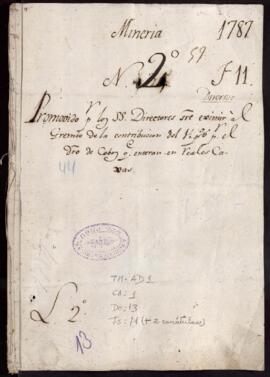 Mineria 1787
N. 2º 59 F 11.
Diverso
Promovido pr los SS. Directores sre eximir al
Gremio de la contribucion del 1½ pSo pr el
dro de Cobos q. enteran en Rs Ca
xas.
44
TM-AD1
CA: 1
DO: 13
FS: 11 (+ 2 carátulas)
L 2º
13